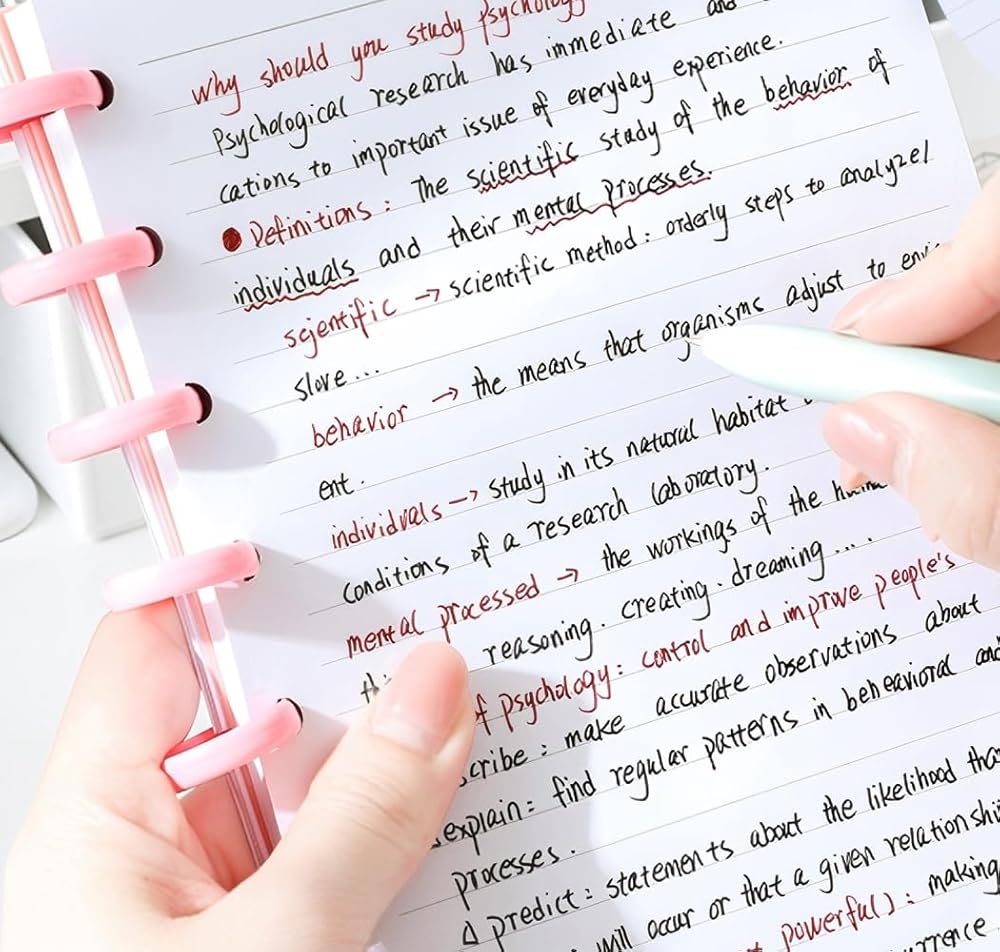 why should you study psychology
Psychological research has immediate and
cations to important issue of everyday experience.
● Definitions : The scientific study of the behavior of
individuals and their mental processes.
scientific → scientific method : orderly steps to analyzel
slove ...
behavior → the means that organisms adjust to
ent .
individuals → study in its natural habitat
conditions of a research laboratory.
mental processed → the workings of the
reasoning. creating. dreaming ....
psychology : control and improve people's
scribe : make accurate observations about
explain : find regular patterns in beheavioral and
processes .
Δ predict : statements about the likelihood
will occur or that a given
powerful) : making